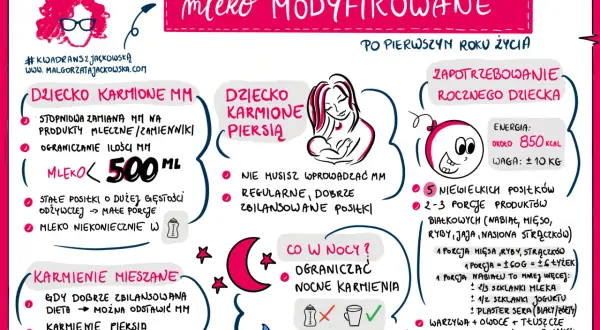 mleko MODYFIKOWANE
PO PIERWSZYM ROKU ŻYCIA
#KWADRANSZJACKOWSKĄ
WWW.MALGORZATAJACKOWSKA.COM
DZIECKO KARMIONE MM
STOPNIOWA ZAMIANA MM NA
PRODUKTY MLECZNE/ZAMIENNIKI
OGRANICZANIE ILOŚCI MM
MLEKO < 500 ML
STAŁE POSIŁKI O DUŻEJ GĘSTOŚCI
ODŻYWCZEJ → MAŁE PORCJE
MLEKO NIEKONIECZNIE W
DZIECKO
KARMIONE
PIERSIĄ
NIE MUSISZ WPROWADZAĆ MM
REGULARNE, DOBRZE
ZBILANSOWANE POSIŁKI
ZAPOTRZEBOWANIE
ROCZNEGO DZIECKA
ENERGIA:
OKOŁO 850 KCAL
WAGA: ± 10 KG
5 NIEWIELKICH POSIŁKÓW
2-3 PORCJE PRODUKTÓW
BIAŁKOWYCH (NABIAŁ, MIĘSO,
RYBY, JAJA, NASIONA STRĄCZKÓW)
1 PORCJA MIĘSA, RYBY, STRĄCZKÓW
1 PORCJA = ± 60G = ± 6 ŁYŻEK
1 PORCJA NABIAŁU TO MNIEJ WIĘCEJ:
± 1/3 SZKLANKI MLEKA
± 1/2 SZKLANKI JOGURTU
± PLASTER SERA (BIAŁY/ŻÓŁTY)
WARZYWA + OWOCE + TŁUSZCZE
KARMIENIE MIESZANE
GDY DOBRZE ZBILANSOWANA
DIETA → MOŻNA ODSTAWIĆ MM
KARMIENIE PIERSIĄ
CO W NOCY?
OGRANICZAĆ
NOCNE KARMIENIA